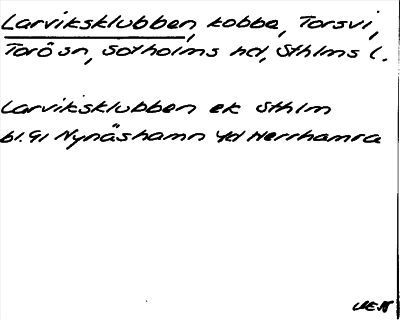 Larviksklubben, kobbe, Torsvi,
Torö sn, Sotholms hd, Sthlms l.
Larviksklubben ek Sthlm
bl. 91 Nynäshamn Yd Herrhamra